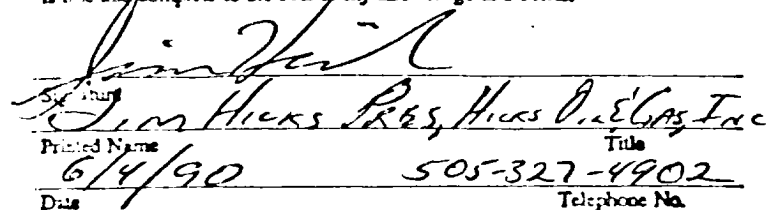 Jim Hicks
Signature
Jim Hicks Pres, Hicks Oil & Gas, Inc
Printed Name Title
6/4/90 505-327-4902
Date Telephone No.